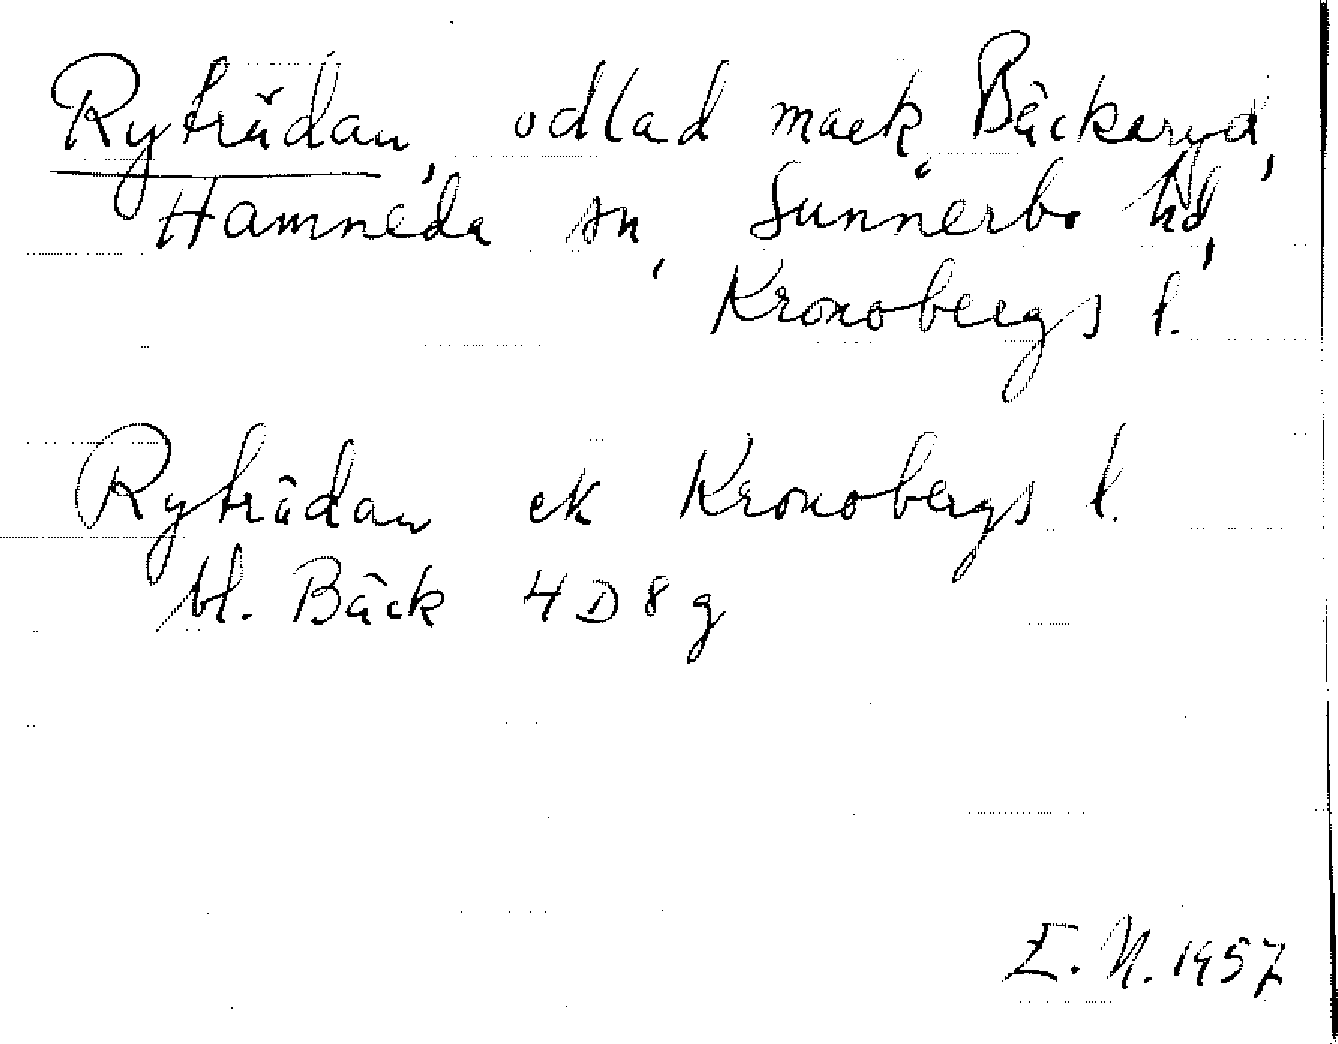 Ryträdan, odlad mark, Bäckaryd,
Hamneda sn, Sunnerbo hd,
Kronobergs l.
Ryträdan ek Kronobergs l.
bl. Bäck 4 D 8 g
E. N. 1957